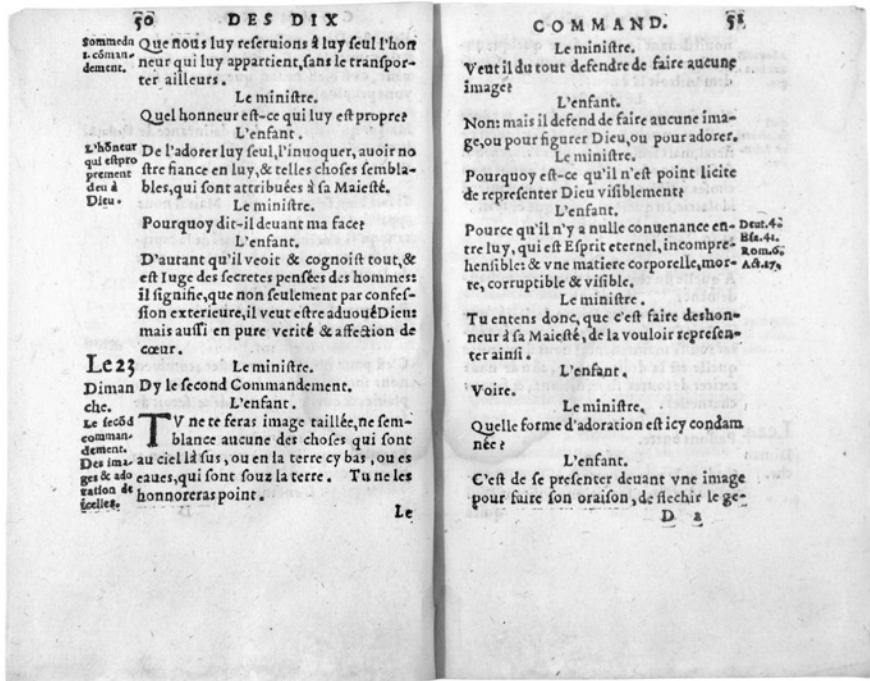 50 DES DIX
Sommedu
1. cōman-
dement.
Que nous luy reseruions à luy seul l'hon
neur qui luy appartient, sans le transpor-
ter ailleurs.
Le ministre.
Quel honneur est-ce qui luy est propre?
L'enfant.
L'hōneur
qui estpro
prement
deu à
Dieu.
De l'adorer luy seul, l'inuoquer, auoir no
stre fiance en luy, & telles choses sembla-
bles, qui sont attribuées à sa Maiesté.
Le ministre.
Pourquoy dit-il deuant ma face?
L'enfant.
D'autant qu'il veoit & cognoist tout, &
est Iuge des secretes pensées des hommes:
il signifie, que non seulement par confes-
sion exterieure, il veut estre aduoué Dieu:
mais aussi en pure verité & affection de
cœur.
Le 23
Diman
che.
Le ministre.
Dy le second Commandement.
L'enfant.
Le secōd
comman-
dement.
Des ima-
ges & ado
ration de
icelles.
TV ne te feras image taillée, ne sem-
blance aucune des choses qui sont
au ciel là sus, ou en la terre cy bas, ou es
eaues, qui sont souz la terre. Tu ne les
honnoreras point.
Le
COMMAND. 51
Le ministre.
Veut il du tout defendre de faire aucune
image?
L'enfant.
Non: mais il defend de faire aucune ima-
ge, ou pour figurer Dieu, ou pour adorer.
Le ministre.
Pourquoy est-ce qu'il n'est point licite
de representer Dieu visiblement?
L'enfant.
Pource qu'il n'y a nulle conuenance en-
tre luy, qui est Esprit eternel, incompre-
hensible: & vne matiere corporelle, mor-
te, corruptible & visible.
Deut. 4.
Esa. 41.
Rom. 6.
Act. 17.
Le ministre.
Tu entens donc, que c'est faire deshon-
neur à sa Maiesté, de la vouloir represen-
ter ainsi.
L'enfant.
Voire.
Le ministre.
Quelle forme d'adoration est icy condam
née?
L'enfant.
C'est de se presenter deuant vne image
pour faire son oraison, de flechir le ge-
D 2